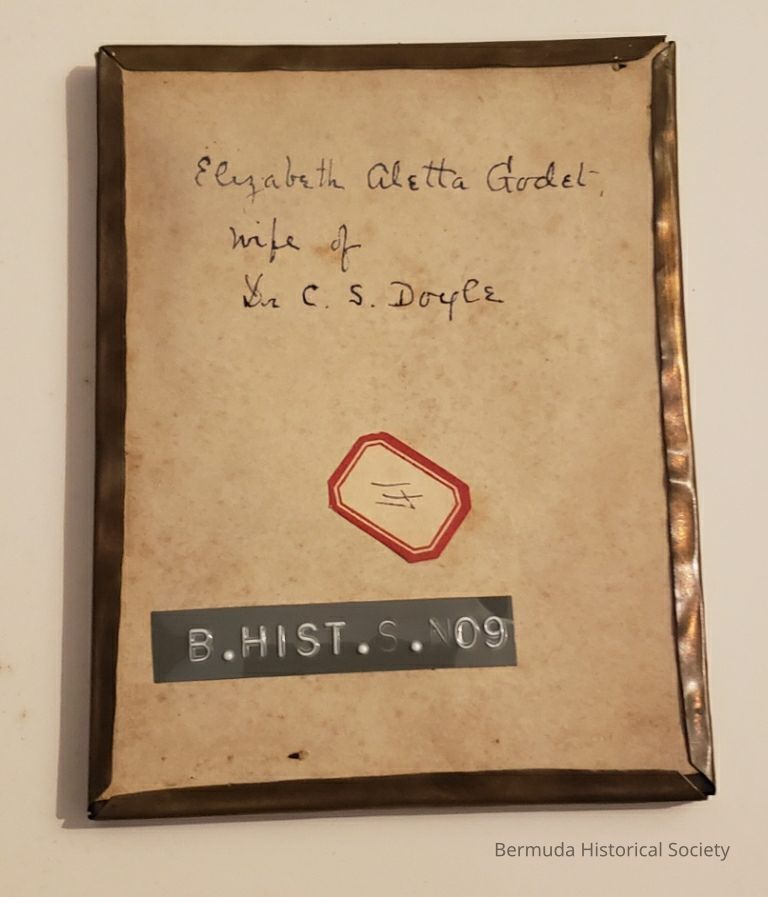 Elizabeth Aletta Godet
wife of
Dr C. S. Doyle
B.HIST.S.N09
Bermuda Historical Society